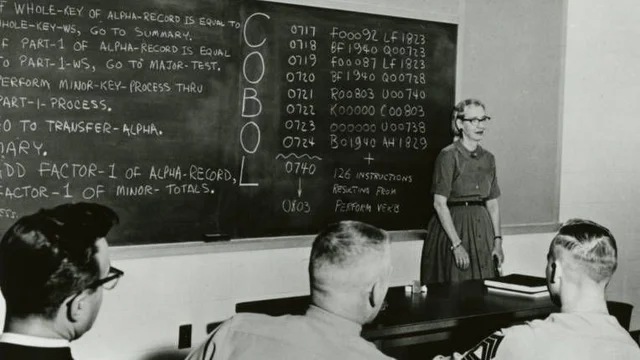 F WHOLE-KEY OF ALPHA-RECORD IS EQUAL TO
WHOLE-KEY-WS, GO TO SUMMARY.
F PART-1 OF ALPHA-RECORD IS EQUAL
TO PART-1-WS, GO TO MAJOR-TEST.
PERFORM MINOR-KEY-PROCESS THRU
PART-1-PROCESS.
GO TO TRANSFER-ALPHA.
MARY.
ADD FACTOR-1 OF ALPHA-RECORD,
FACTOR-1 OF MINOR-TOTALS.
COBOL
0717 F00092 LF1823
0718 BF1940 Q00723
0719 F00087 LF1823
0720 BF1940 Q00728
0721 R00803 U00740
0722 K00000 C00803
0723 000000 U00738
0724 B01940 AH1829
+
0740 126 INSTRUCTIONS
RESULTING FROM
0803 PERFORM VERB